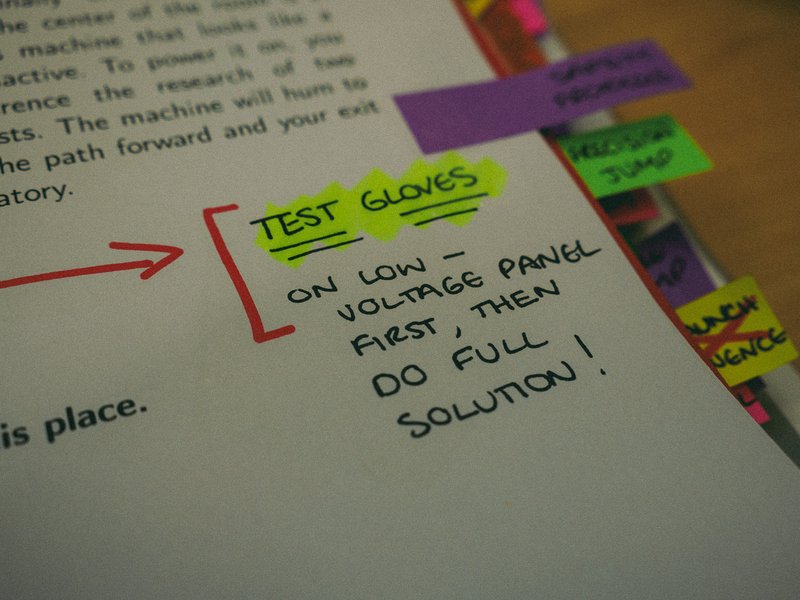 the center of the room
machine that looks like a
active. To power it on, you
rence the research of two
sts. The machine will hum to
he path forward and your exit
atory.
TEST GLOVES
ON LOW-
VOLTAGE PANEL
FIRST, THEN
DO FULL
SOLUTION!
is place.
PRECISION
JUMP
UNCH
UENCE